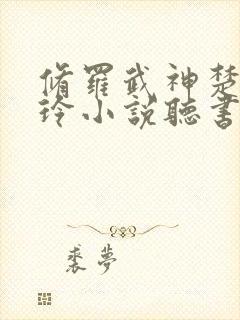 脩羅武神楚
玲小說聽書
裘夢